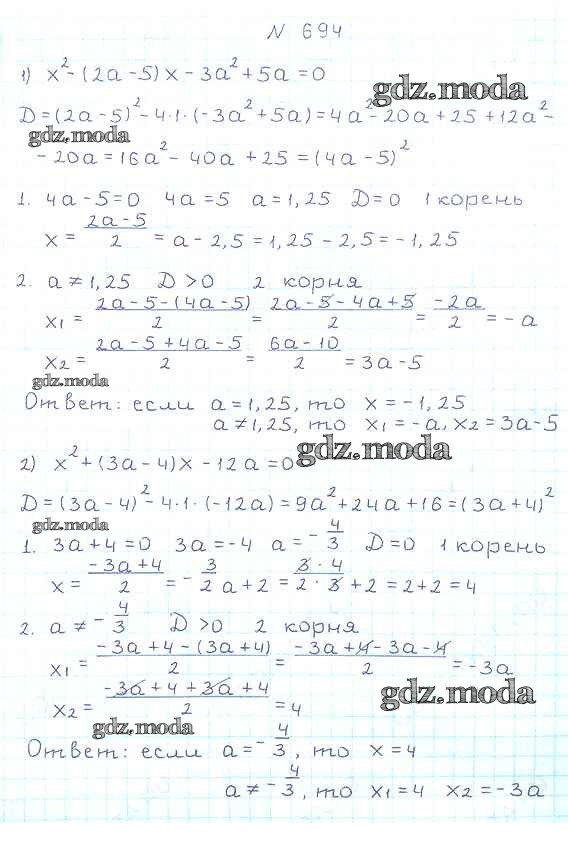 N 694
1) x² - (2a - 5)x - 3a² + 5a = 0
gdz.moda
D = (2a - 5)² - 4·1·(-3a² + 5a) = 4a² - 20a + 25 + 12a² -
gdz.moda
- 20a = 16a² - 40a + 25 = (4a - 5)²
1. 4a - 5 = 0 4a = 5 a = 1,25 D = 0 1 корень
x = (2a - 5)/2 = a - 2,5 = 1,25 - 2,5 = - 1,25
2. a ≠ 1,25 D > 0 2 корня
x₁ = (2a - 5 - (4a - 5))/2 = (2a - 5 - 4a + 5)/2 = (-2a)/2 = - a
x₂ = (2a - 5 + 4a - 5)/2 = (6a - 10)/2 = 3a - 5
gdz.moda
Ответ: если a = 1,25, то x = - 1,25
a ≠ 1,25, то x₁ = - a, x₂ = 3a - 5
gdz.moda
2) x² + (3a - 4)x - 12a = 0
D = (3a - 4)² - 4·1·(-12a) = 9a² + 24a + 16 = (3a + 4)²
gdz.moda
1. 3a + 4 = 0 3a = -4 a = - 4/3 D = 0 1 корень
x = (-3a + 4)/2 = - 3/2 a + 2 = (3 · 4)/(2 · 3) + 2 = 2 + 2 = 4
2. a ≠ - 4/3 D > 0 2 корня
x₁ = (-3a + 4 - (3a + 4))/2 = (-3a + 4 - 3a - 4)/2 = -3a
gdz.moda
x₂ = (-3a + 4 + 3a + 4)/2 = 4
gdz.moda
Ответ: если a = - 4/3, то x = 4
a ≠ - 4/3, то x₁ = 4 x₂ = -3a